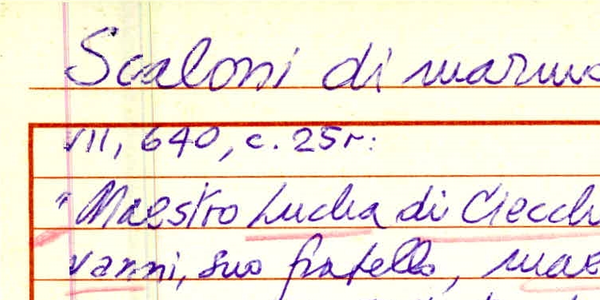 Scaloni di marmo
VII, 640, c. 25r:
"Maestro Lucha di Ciecch
vanni, suo fratello, mae